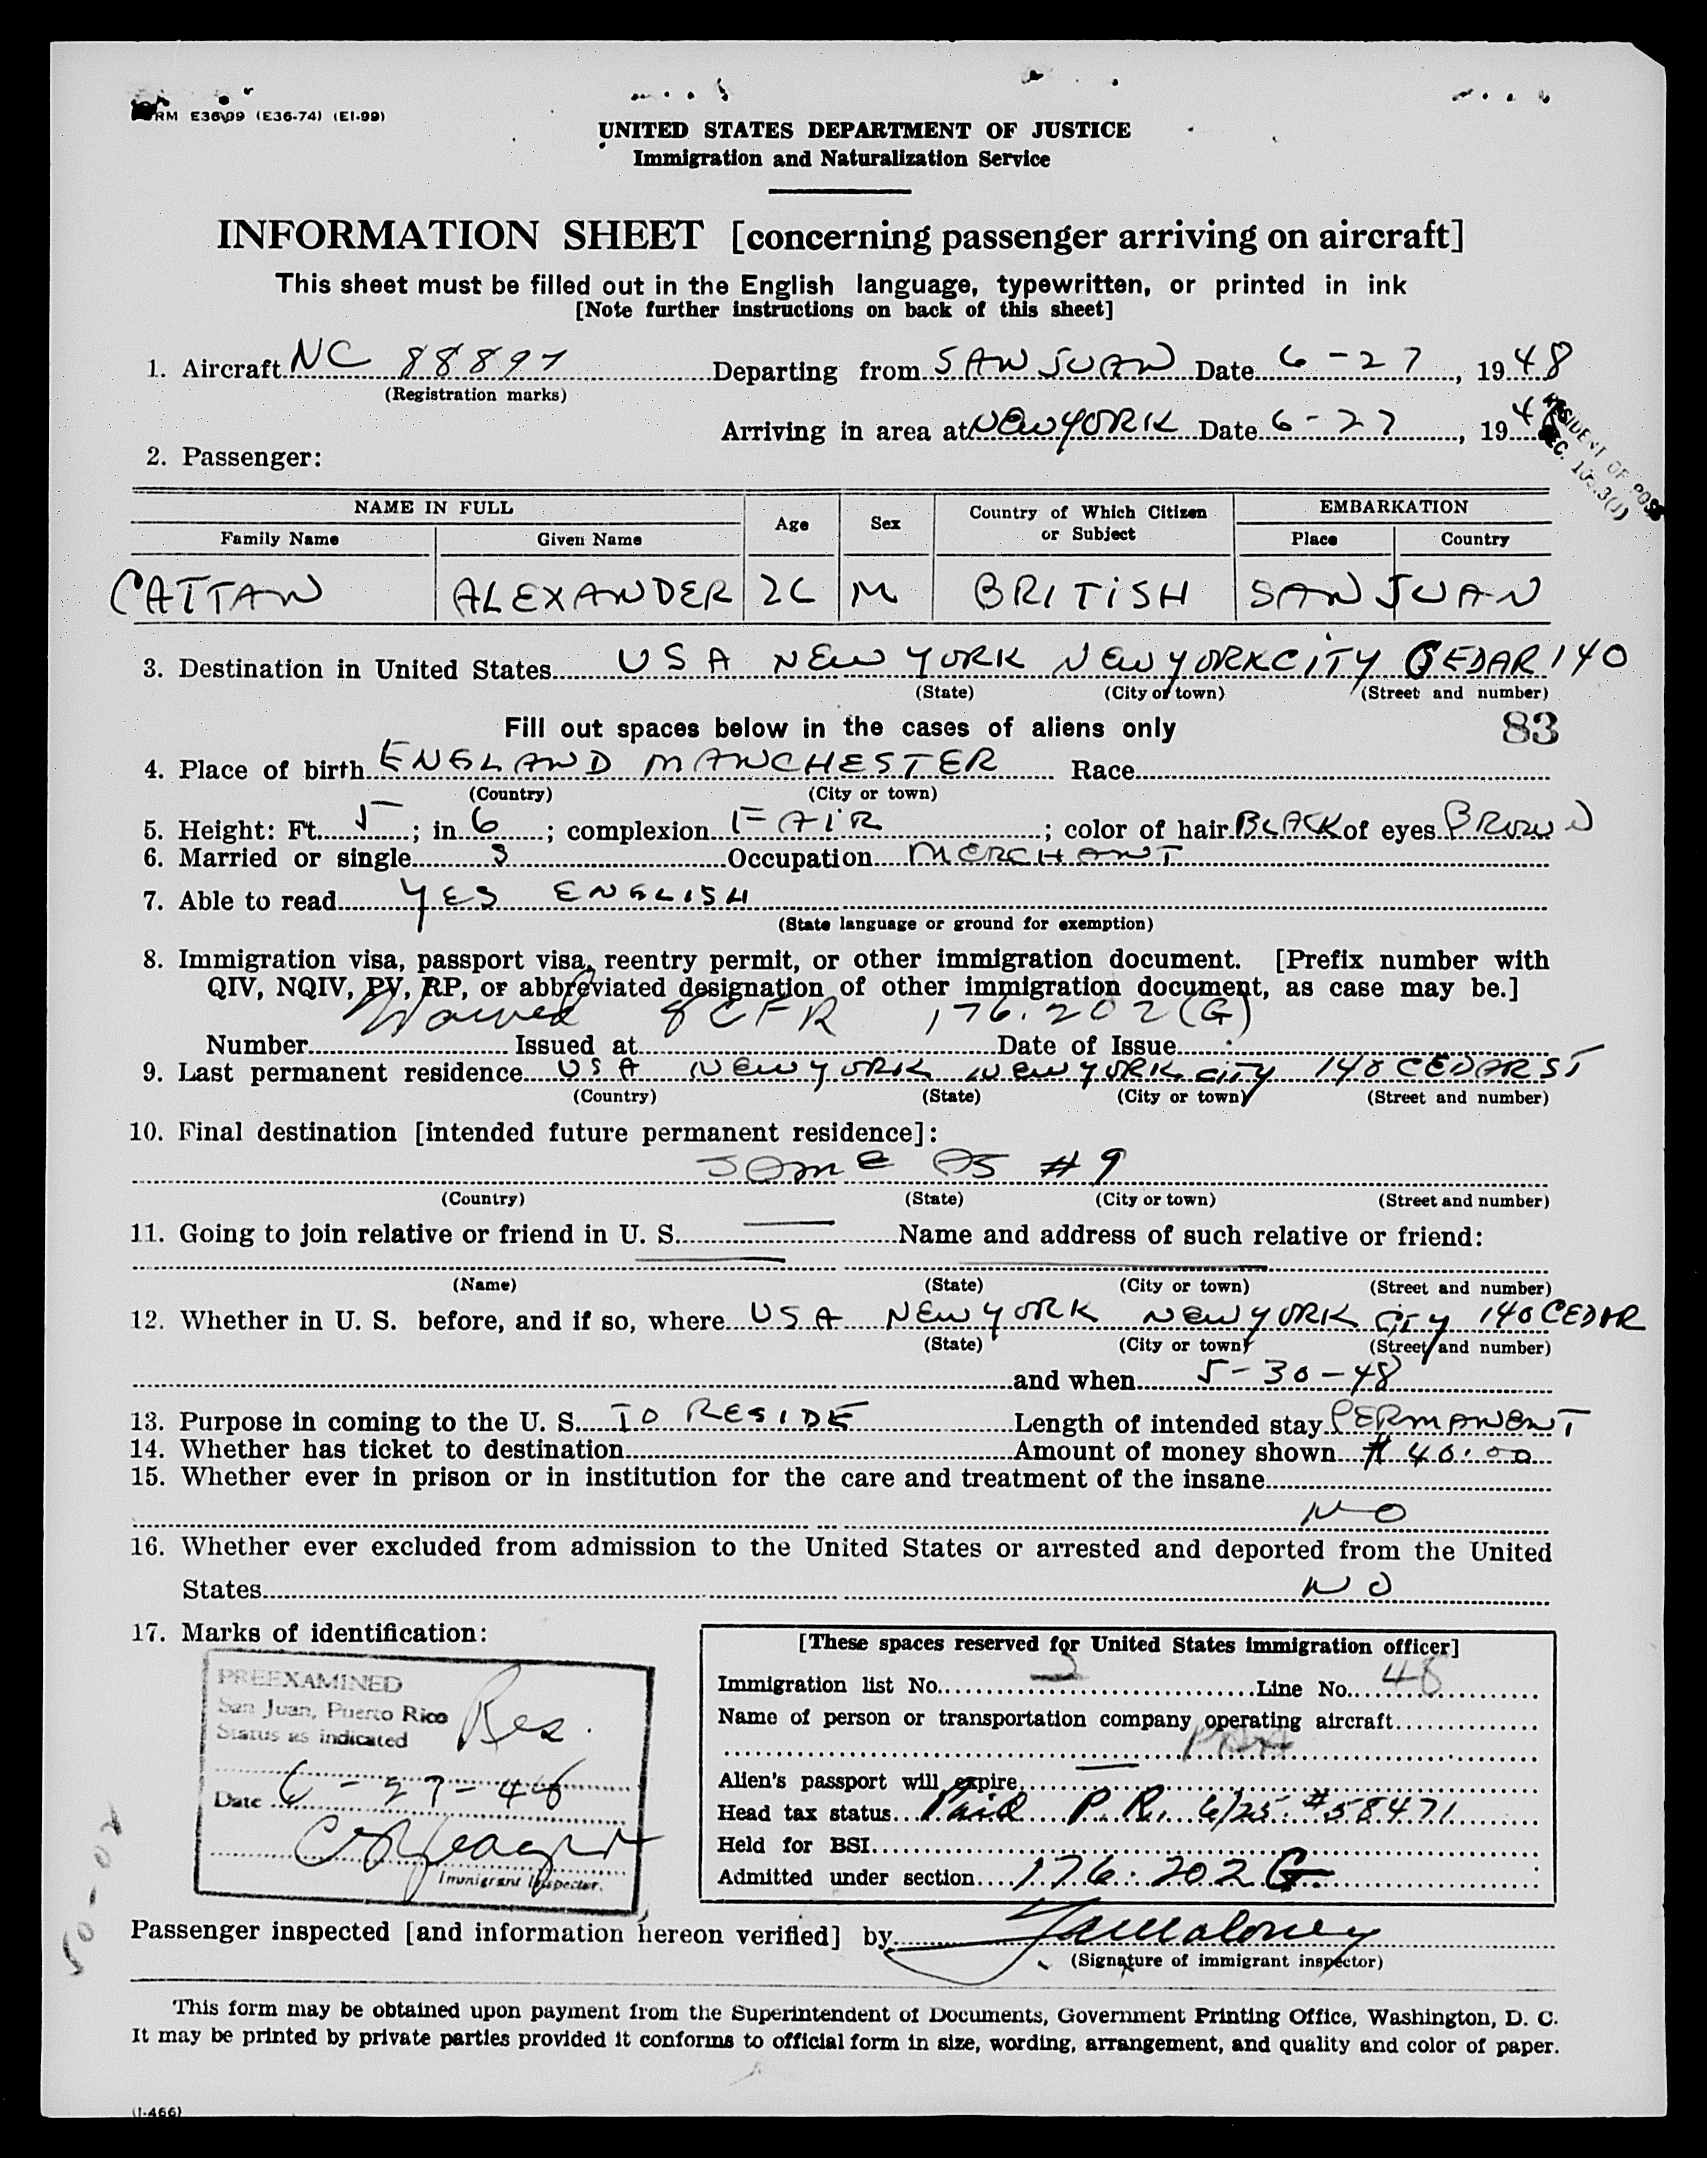 FORM E36-99 (E36-74) (EI-99)
UNITED STATES DEPARTMENT OF JUSTICE
Immigration and Naturalization Service
INFORMATION SHEET [concerning passenger arriving on aircraft]
This sheet must be filled out in the English language, typewritten, or printed in ink
[Note further instructions on back of this sheet]
1. Aircraft NC 88897 Departing from SAN JUAN Date 6-27, 1948
(Registration marks)
Arriving in area at NEW YORK Date 6-27, 1948
RESIDENT OF POSS
SEC.
2. Passenger:
NAME IN FULL Age Sex Country of Which Citizen or Subject EMBARKATION
Family Name Given Name Place Country
CATTAN ALEXANDER 26 M BRITISH SAN JUAN
3. Destination in United States USA NEW YORK NEW YORK CITY CEDAR 140
(State) (City or town) (Street and number)
Fill out spaces below in the cases of aliens only 83
4. Place of birth ENGLAND MANCHESTER Race
(Country) (City or town)
5. Height: Ft. 5; in. 6; complexion FAIR; color of hair BLACK of eyes BROWN
6. Married or single S Occupation MERCHANT
7. Able to read YES ENGLISH
(State language or ground for exemption)
8. Immigration visa, passport visa, reentry permit, or other immigration document. [Prefix number with
QIV, NQIV, PV, RP, or abbreviated designation of other immigration document, as case may be.]
Waived 8 CFR 176.202(G)
Number Issued at Date of Issue
9. Last permanent residence USA NEW YORK NEW YORK CITY 140 CEDAR ST
(Country) (State) (City or town) (Street and number)
10. Final destination [intended future permanent residence]:
SAME AS #9
(Country) (State) (City or town) (Street and number)
11. Going to join relative or friend in U. S. Name and address of such relative or friend:
(Name) (State) (City or town) (Street and number)
12. Whether in U. S. before, and if so, where USA NEW YORK NEW YORK CITY 140 CEDAR
(State) (City or town) (Street and number)
and when 5-30-48
13. Purpose in coming to the U. S. TO RESIDE Length of intended stay PERMANENT
14. Whether has ticket to destination Amount of money shown $ 40.00
15. Whether ever in prison or in institution for the care and treatment of the insane
NO
16. Whether ever excluded from admission to the United States or arrested and deported from the United
States NO
17. Marks of identification:
PREEXAMINED
San Juan, Puerto Rico
Status as indicated
Res.
Date 6-27-48
Immigrant Inspector.
[These spaces reserved for United States immigration officer]
Immigration list No. Line No. 48
Name of person or transportation company operating aircraft
PAA
Alien's passport will expire
Head tax status Paid P.R. 6/25 #58471
Held for BSI
Admitted under section 176.202 G
Passenger inspected [and information hereon verified] by
(Signature of immigrant inspector)
This form may be obtained upon payment from the Superintendent of Documents, Government Printing Office, Washington, D. C.
It may be printed by private parties provided it conforms to official form in size, wording, arrangement, and quality and color of paper.
(I-466)